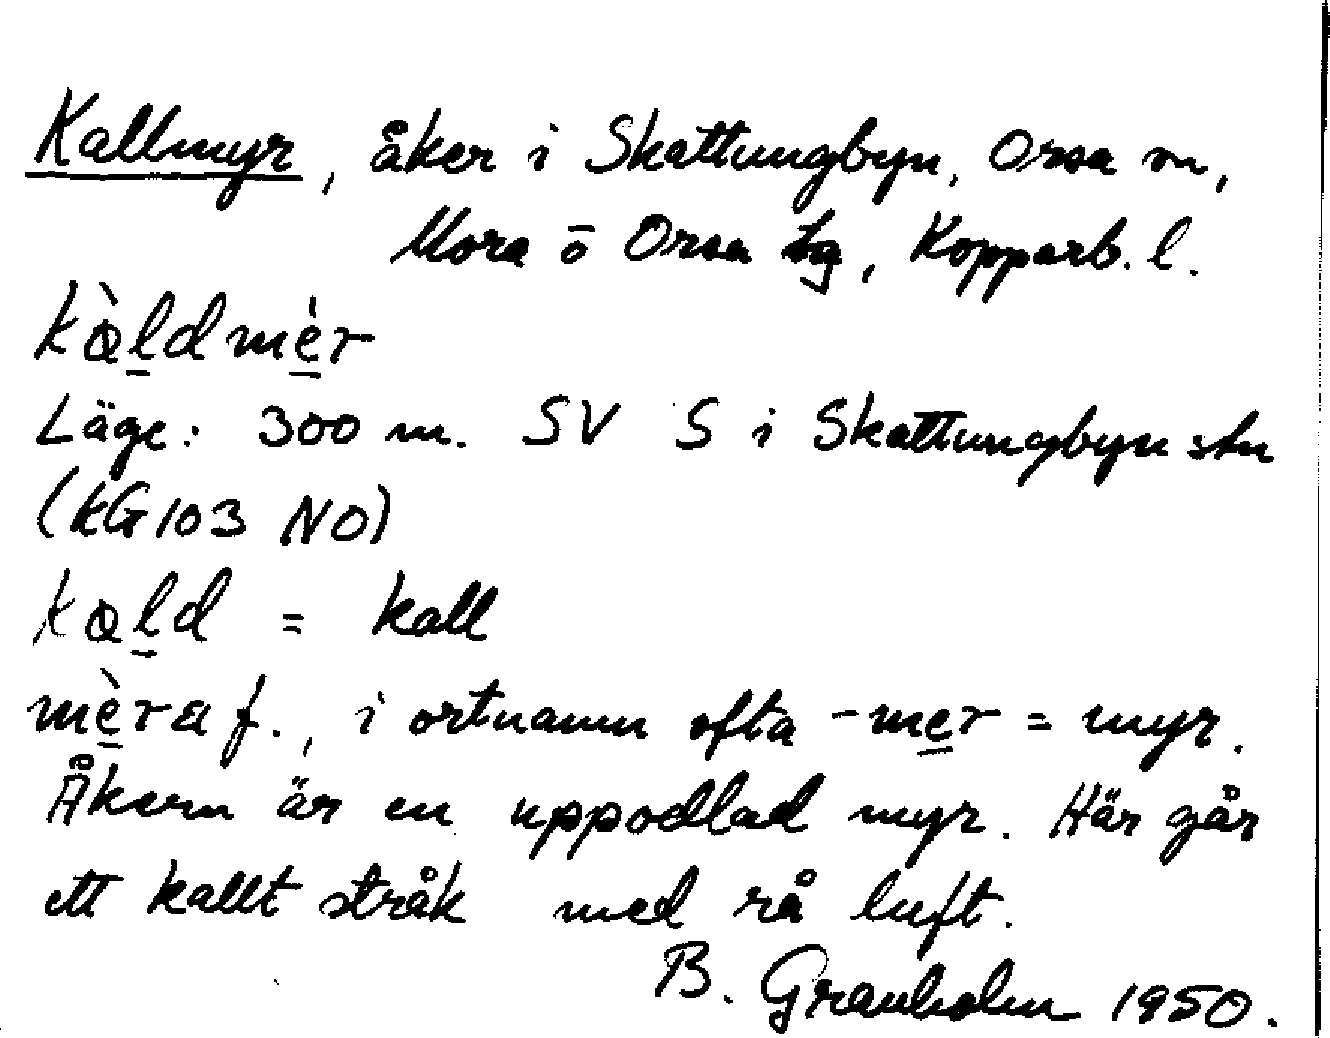 Kallmyr, åker i Skattungbyn, Orsa sn,
Mora o Orsa tg, Kopparb. l.
kàldmèr
Läge: 300 m. SV S i Skattungbyn stn
(KG 103 NO)
kald = kall
mèra f., i ortnamn ofta -mer = myr.
Åkern är en uppodlad myr. Här går
ett kallt stråk med rå luft.
B. Granholm 1950.